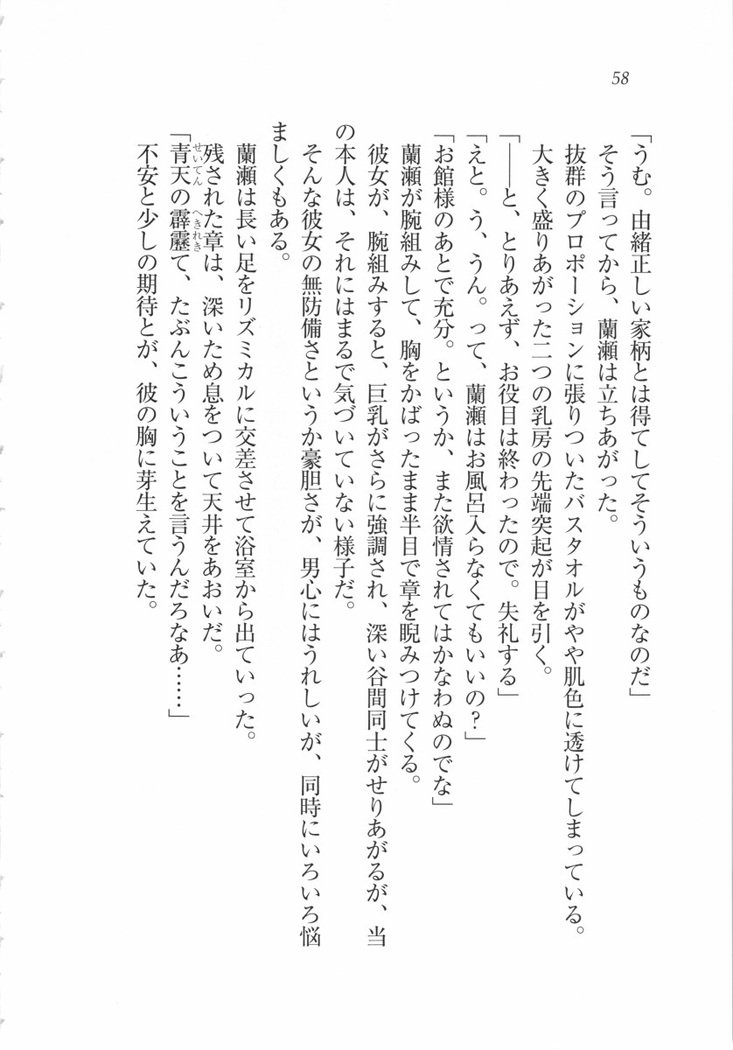 58
「うむ。由緒正しい家柄とは得てしてそういうものなのだ」
そう言ってから、蘭瀬は立ちあがった。
抜群のプロポーションに張りついたバスタオルがやや肌色に透けてしまっている。
大きく盛りあがった二つの乳房の先端突起が目を引く。
「――と、とりあえず、お役目は終わったので。失礼する」
「えと。う、うん。って、蘭瀬はお風呂入らなくてもいいの？」
「お館様のあとで充分。というか、また欲情されてはかなわぬのでな」
蘭瀬が腕組みして、胸をかばったまま半目で章を睨みつけてくる。
彼女が、腕組みすると、巨乳がさらに強調され、深い谷間同士がせりあがるが、当
の本人は、それにはまるで気づいていない様子だ。
そんな彼女の無防備さというか豪胆さが、男心にはうれしいが、同時にいろいろ悩
ましくもある。
蘭瀬は長い足をリズミカルに交差させて浴室から出ていった。
残された章は、深いため息をついて天井をあおいだ。
せいてん へきれき
「青天の霹靂て、たぶんこういうことを言うんだろなあ……」
不安と少しの期待とが、彼の胸に芽生えていた。